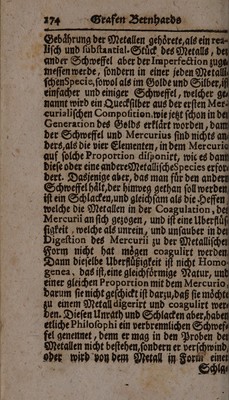 274 Grafen Bernhards
Gebährung der Metallen gehörete, als ein rea-
lisch und substantial-Stück des Metalls, der
ander Schweffel aber der Imperfection zuge-
messen werde, sondern in einer jeden Metalli-
schen Specie, sowol als im Golde und Silber, ist
einfacher und einiger Schweffel, welcher ge-
nannt wird ein Quecksilber aus der ersten Mer-
curialischen Composition, wie jetzt schon in der
Generation des Golds erklärt worden, dann
der Schweffel und Mercurius sind nichts an-
ders, als die vier Elementen, in dem Mercurio
auf solche Proportion disponirt, wie es dann
diese oder eine andere Metallische Species erfor-
dert. Dasjenige aber, das man für den andern
Schweffel hält, der hinweg gethan soll werden,
ist ein Schlacken, und gleichsam als die Heffen,
welche die Metallen in der Coagulation, des
Mercurii an sich gezogen, und ist eine Uberflüs-
sigkeit, welche als unrein, und unsauber in der
Digestion des Mercurii zu der Metallischen
Form nicht hat mögen coagulirt werden.
Dann dieselbe Uberflüssigkeit ist nicht Homo-
genea, das ist, eine gleichförmige Natur, und
einer gleichen Proportion mit dem Mercurio,
darum sie nicht geschickt ist darzu, daß sie möchte
zu einem Metall digerirt und coagulirt wer-
den. Diesen Unrath und Schlacken aber, haben
etliche Philosophi ein verbrennlichen Schwef-
fel genennet, denn er mag in den Proben der
Metallen nicht bestehen, sondern er verschwind,
oder wird von dem Metall in Form einer
Schla-